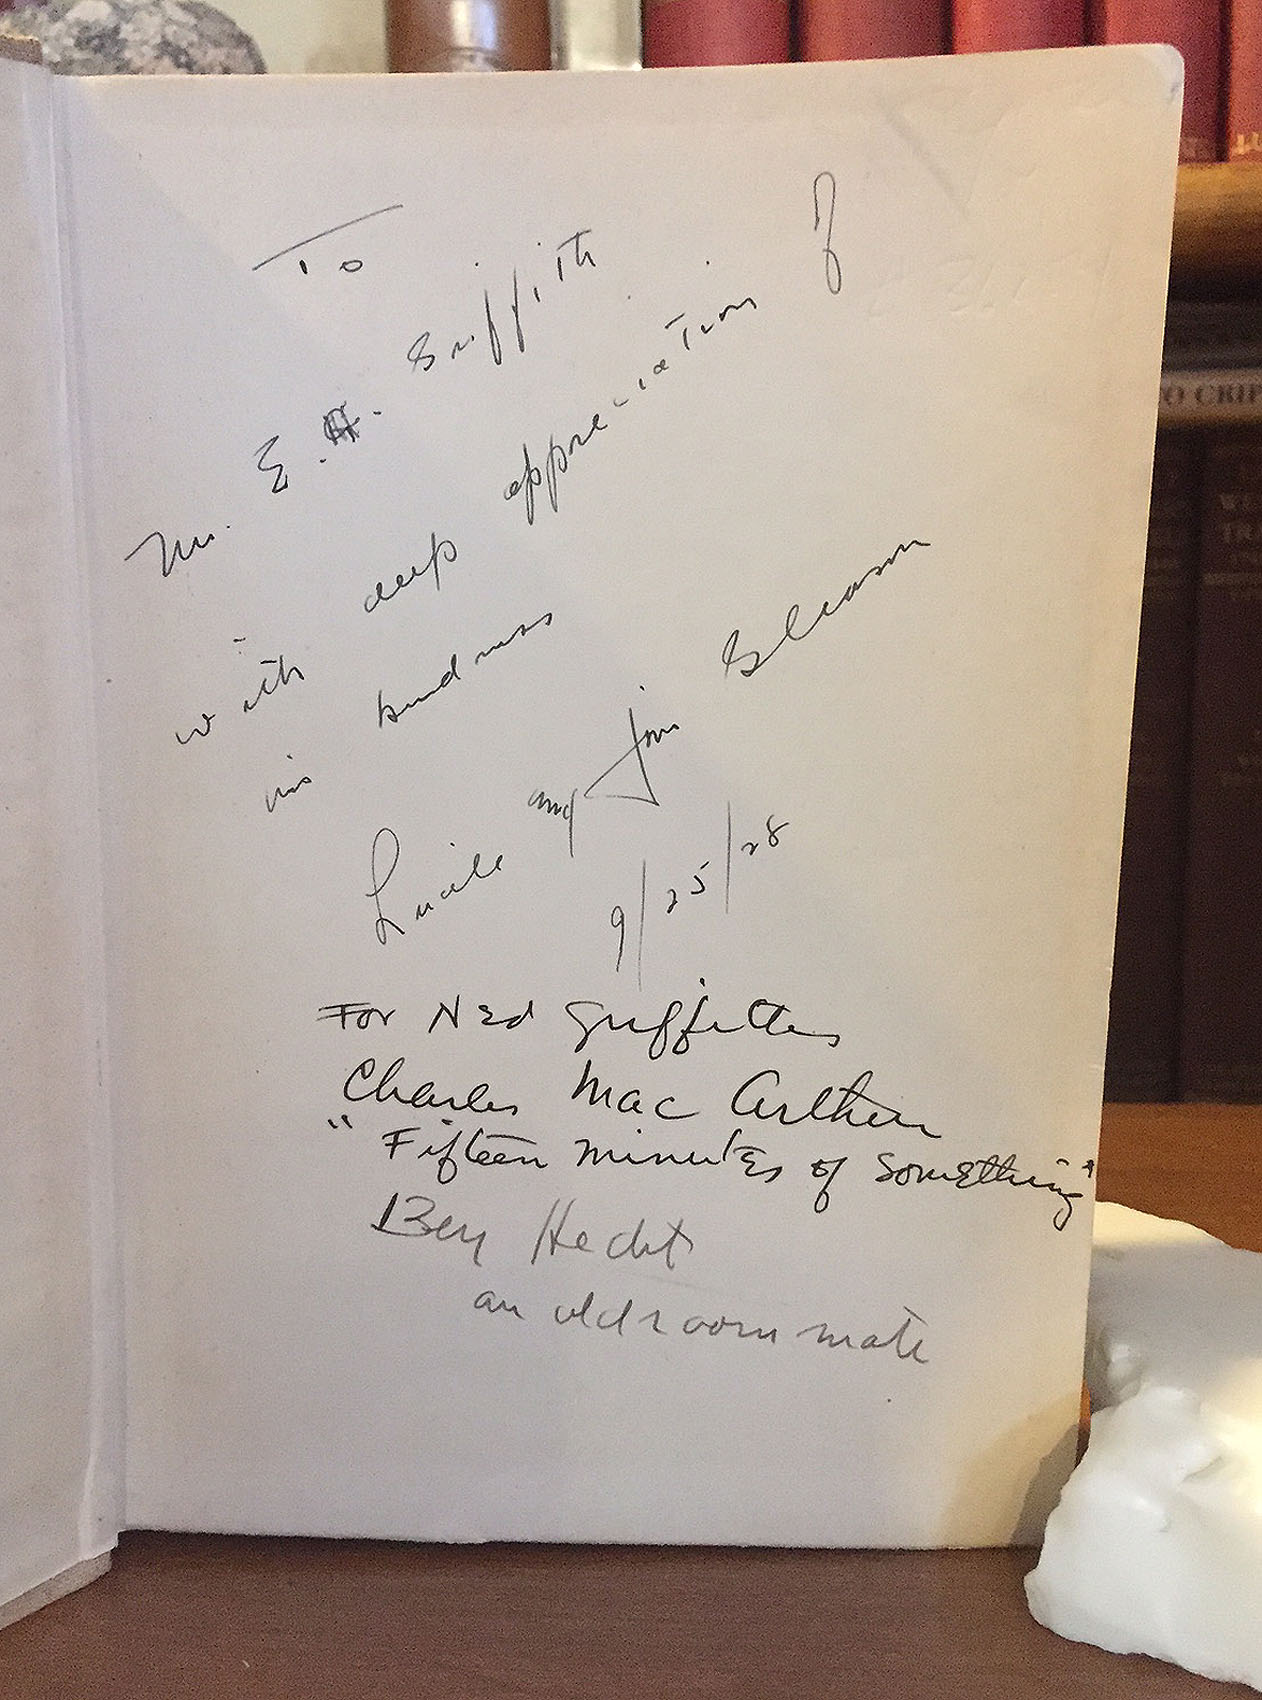 To
Mr. E. H. Griffith
with deep appreciation of
his kindness
Lucile and Jim Gleason
9/25/28
For Ned Griffiths
Charles MacArthur
"Fifteen minutes of something"
Ben Hecht
an old room mate
TO CRIP